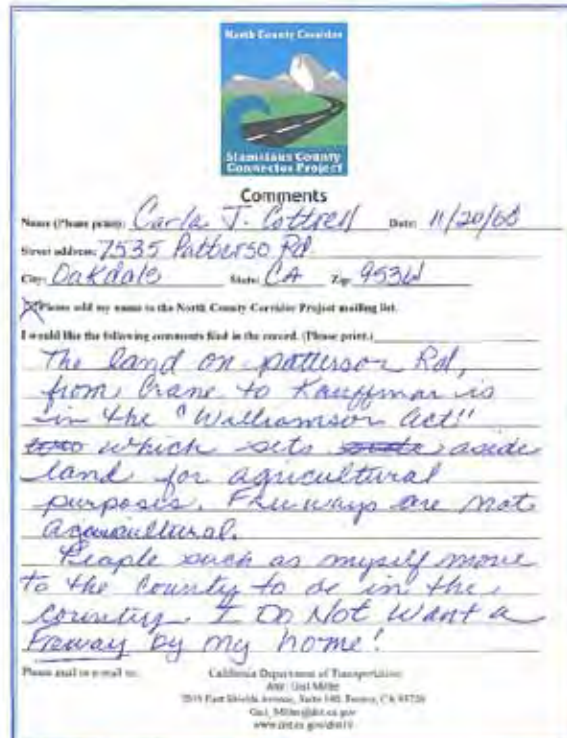 North County Corridor
Stanislaus County
Connector Project
Comments
Name (Please print): Carla J. Cottrell Date: 11/20/08
Street address: 7535 Patterso Rd.
City: Oakdale State: CA Zip: 95361
Please add my name to the North County Corridor Project mailing list.
I would like the following comments filed in the record. (Please print.)
The land on patterson Rd,
from Crane to Kauffman is
in the "Williamson Act!"
which sets aside
land for agricultural
purposes. Freeways are not
agricultural.
People such as myself move
to the County to be in the
country. I Do Not Want a
Freway by my home!
Please mail or e-mail to: California Department of Transportation
Attn: Gail Miller
2015 East Shields Avenue, Suite 100, Fresno, CA 93726
Gail_Miller@dot.ca.gov